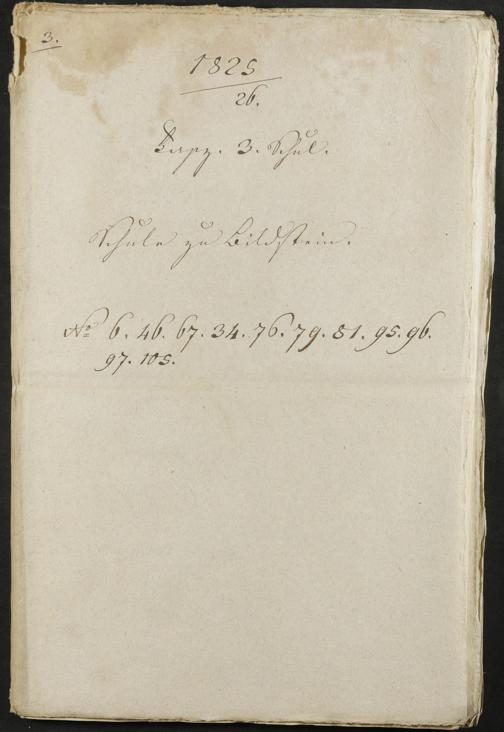 3.
1825
26.
Fasz. 3. Schul.
Schule zu Bildstein.
No 6. 46. 67. 34. 76. 79. 81. 95. 96.
97. 105.